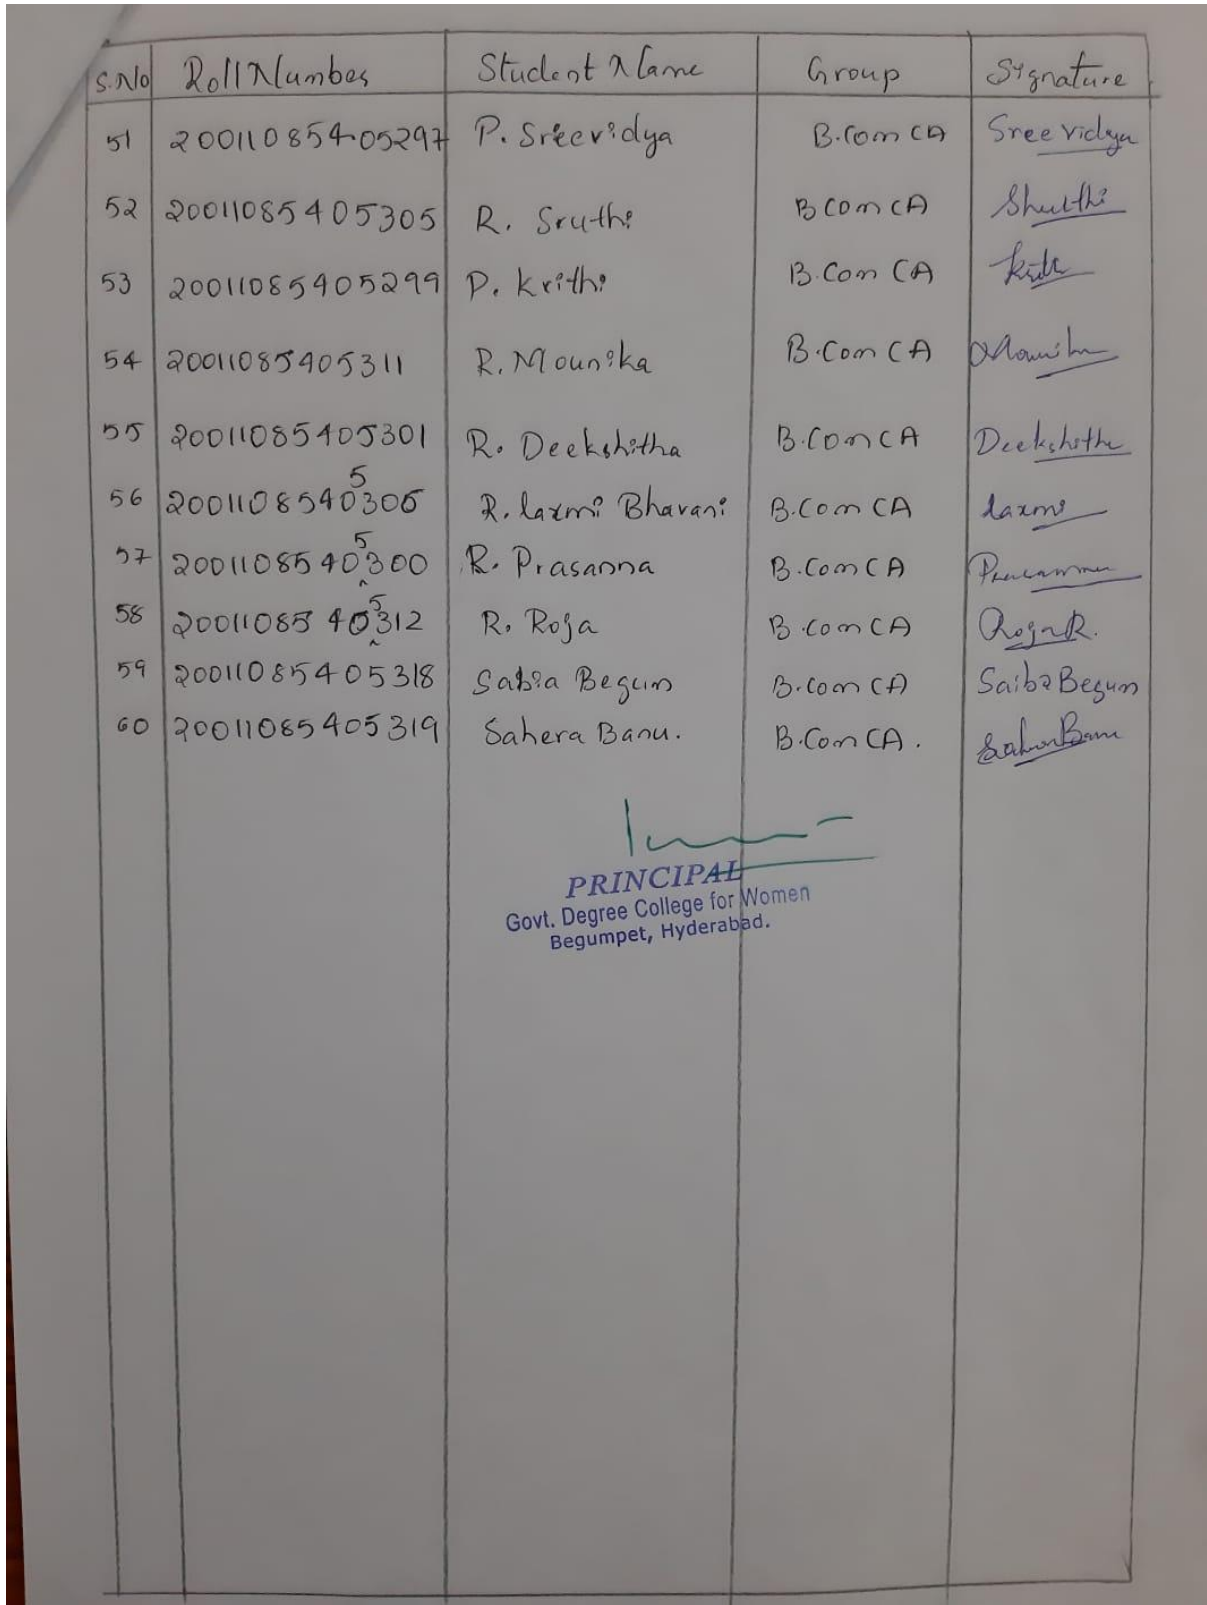 S.No Roll Number Student Name Group Signature
51 20011085405297 P. Sreevidya B.Com CA Sreevidya
52 20011085405305 R. Sruthi B Com CA Shruthi
53 20011085405299 P. Krithi B.Com CA
54 20011085405311 R. Mounika B.Com CA Mounika
55 20011085405301 R. Deekshitha B.Com CA Deekshitha
5
56 2001108540306 R. laxmi Bhavani B.Com CA laxmi
5
57 2001108540300 R. Prasanna B.Com CA
5
58 2001108540312 R. Roja B.Com CA Roja R.
59 20011085405318 Sabia Begum B.Com CA Saiba Begum
60 20011085405319 Sahera Banu. B.Com CA. Sahera Banu
PRINCIPAL
Govt. Degree College for Women
Begumpet, Hyderabad.